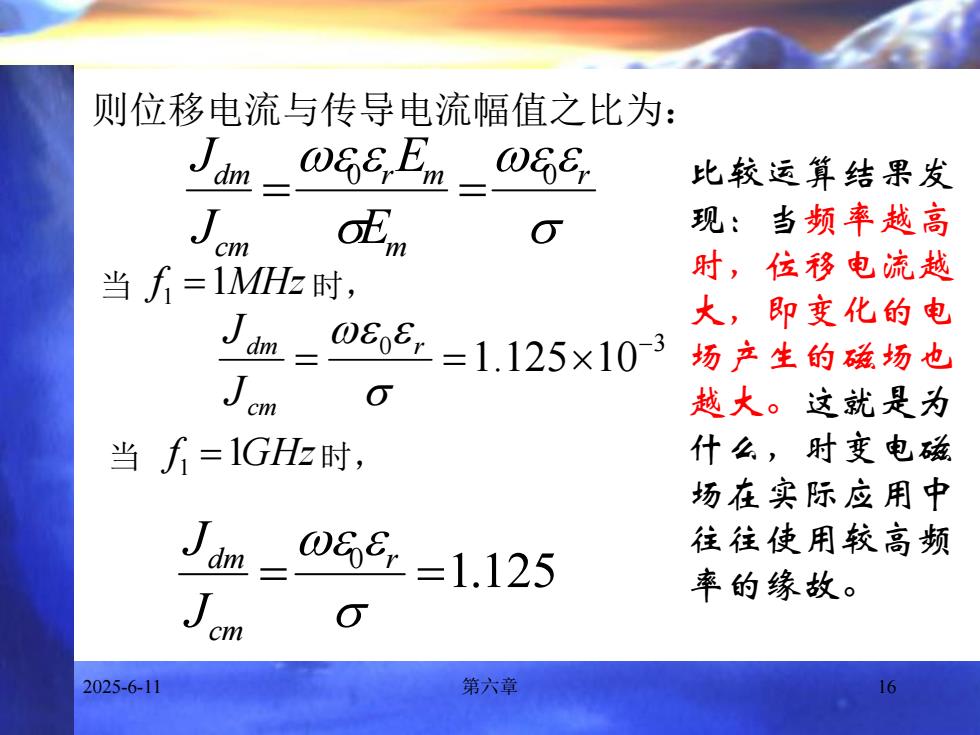 则位移电流与传导电流幅值之比为：
J_dm / J_cm = ωε₀ε_rE_m / σE_m = ωε₀ε_r / σ
当 f₁ = 1MHz 时，
J_dm / J_cm = ωε₀ε_r / σ = 1.125×10⁻³
当 f₁ = 1GHz 时，
J_dm / J_cm = ωε₀ε_r / σ = 1.125
比较运算结果发
现：当频率越高
时，位移电流越
大，即变化的电
场产生的磁场也
越大。这就是为
什么，时变电磁
场在实际应用中
往往使用较高频
率的缘故。
2025-6-11
第六章
16